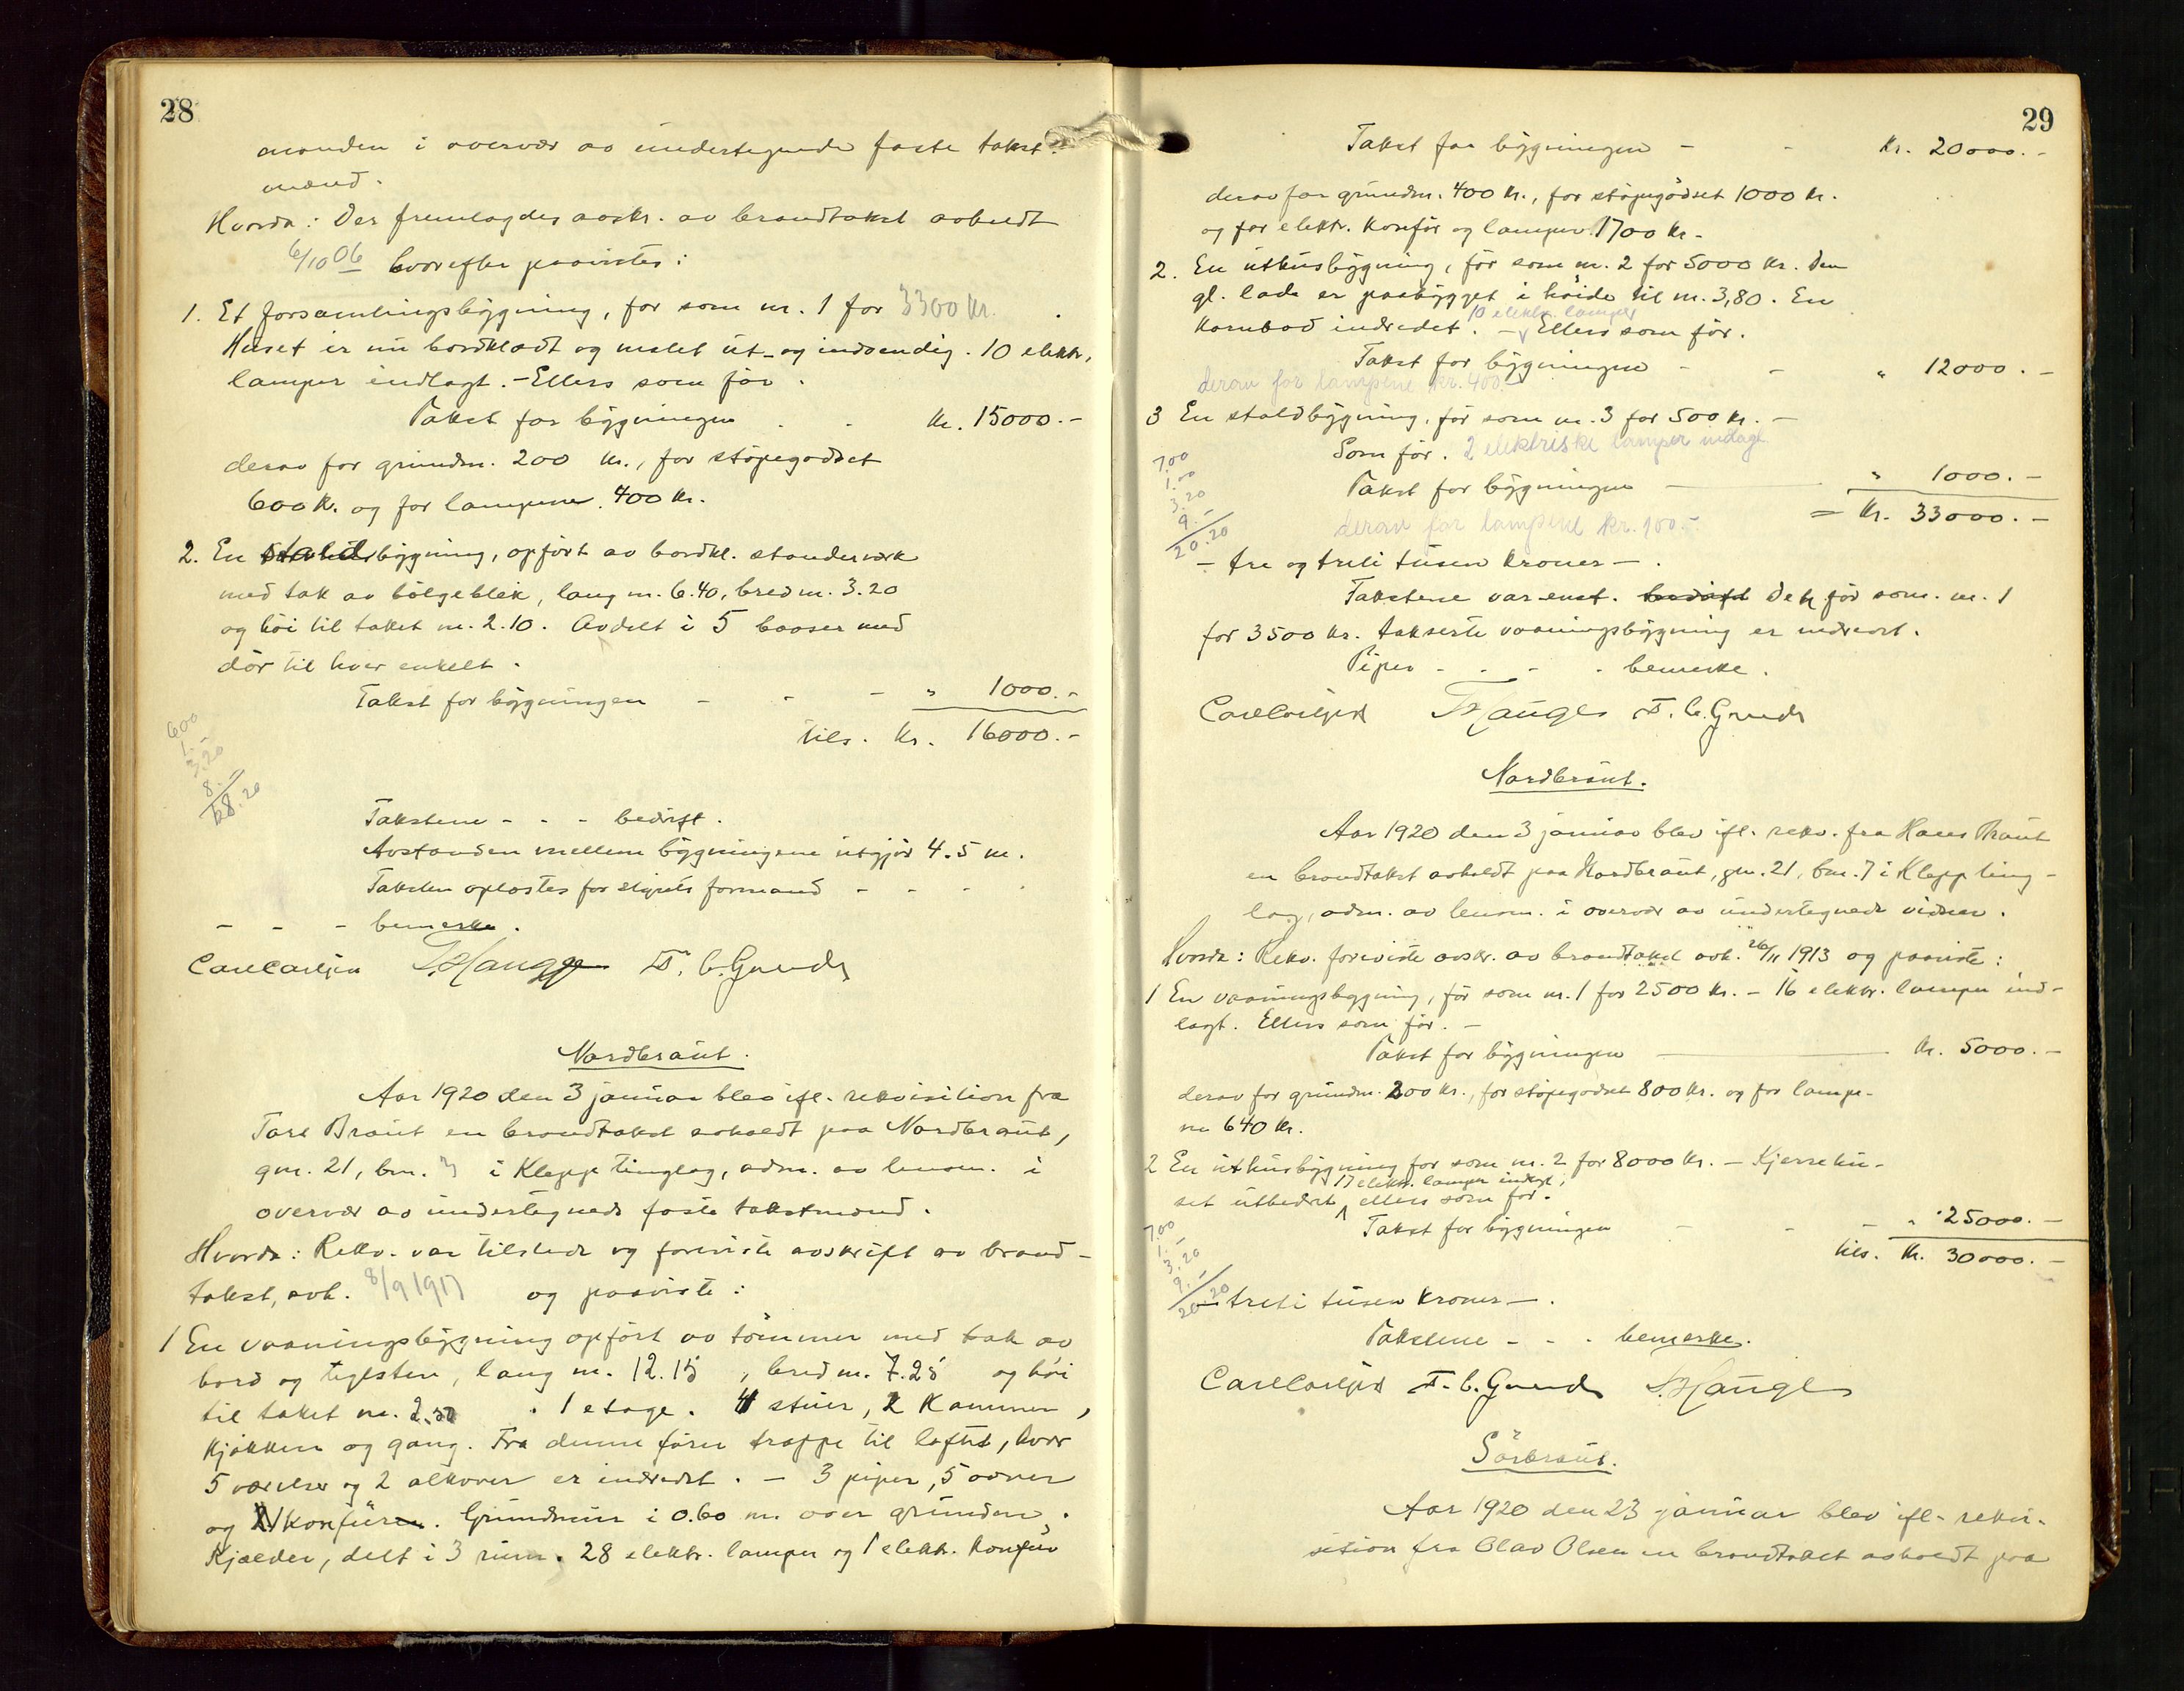 28
manden i overvær av undertegnede faste takst-
mænd.
Hvorda: Der fremlagdes avskr. av brandtakst avholdt
6/10 06 hvorefter paavistes:
1. Et forsamlingsbygning, før som nr. 1 for 3300 kr.
Huset er nu bordklædt og malet ut- og indvendig. 10 elektr.
lamper indlagt. - Ellers som før.
Takst for bygningen - - kr. 15000.-
derav for grundm. 200 kr., for støpegodset
600 kr. og for lampene 400 kr.
2. En staldbygning, opført av bordkl. standerverk
med tak av bølgeblik, lang m. 6.40, bred m. 3.20
og høi til taket m. 2.10. Avdelt i 5 baaser med
dør til hver enkelt.
Takst for bygningen - - - " 1000.-
tils. kr. 16000.-
600
1.-
3.20
8.-
68.20
Takstene - - - bedrift.
Avstanden mellem bygningene utgjør 4.5 m.
Taksten oplæstes for styrets formand - - - -
- - - bemerke.
Carl Carlsen T. Hauge T. C. Grude
Nordbraut.
Aar 1920 den 3 januar blev ifl. rekvisition fra
Tore Braut en brandtakst avholdt paa Nordbraut,
gnr. 21, bnr. 3 i Klepp tinglag, adm. av lensm. i
overvær av undertegnede faste takstmænd.
Hvorda: Rekv. var tilstede og foreviste avskrift av brand-
takst, avh. 8/9 1917 og paaviste:
1 En vaaningsbygning opført av tømmer med tak av
bord og teglsten, lang m. 12.15, bred m. 7.25 og høi
til taket m. 2.50. 1 etage. 4 stuer, 2 kammer,
kjøkken og gang. Fra denne fører trappe til loftet, hvor
5 værelser og 2 alkover er indredet. - 3 piper, 5 ovner
og 1 komfur. Grundmur i 0.60 m. over grunden.
Kjælder, delt i 3 rum. 28 elektr. lamper og 1 elektr. komfur
29
Takst for bygningen - - kr. 20000.-
derav for grundm. 400 kr., for støpegodset 1000 kr.
og for elektr. komfyr og lamper 1700 kr.-
2. En uthusbygning, før som nr. 2 for 5000 kr. Den
gl. lade er paabygget i høide til m. 3,80. En
kornbod indredet. - 10 elektr. lamper Ellers som før.
Takst for bygningen - - " 12000.-
derav for lampene kr. 400.-
3 En staldbygning, før som nr. 3 for 500 kr. -
Som før. 2 elektriske lamper indlagt
Takst for bygningen - " 1000.-
= kr. 33000.-
derav for lampene kr. 100.-
7.00
1.00
3.20
9.-
20.20
- tre og treti tusen kroner -.
Takstene var enst. bedrift Den før som nr. 1
for 3500 kr. takserte vaaningsbygning er nedrevet.
Piper - - - - bemerke.
Carl Carlsen T. Hauge T. C. Grude
Nordbraut.
Aar 1920 den 3 januar blev ifl. rekv. fra Hans Braut
en brandtakst avholdt paa Nordbraut, gnr. 21, bnr. 7 i Klepp ting-
lag, adm. av lensm. i overvær av undertegnede vidner.
Hvorda: Rekv. foreviste avskr. av brandtakst avh. 26/11 1913 og paaviste:
1 En vaaningsbygning, før som nr. 1 for 2500 kr. - 16 elektr. lamper ind-
lagt. Ellers som før. -
Takst for bygningen - kr. 5000.-
derav for grundm. 200 kr., for støpegodset 800 kr. og for lampe-
ne 640 kr.
2 En uthusbygning før som nr. 2 for 8000 kr. - Kjerrehu-
set utbedret, 17 elektr. lamper indlagt, ellers som før.
Takst for bygningen - - - " 25000.-
tils. kr. 30000.-
7.00
1.-
3.20
9.-
20.20
- treti tusen kroner -.
Takstene - - - bemerke.
Carl Carlsen T. C. Grude T. Hauge
Sørbraut.
Aar 1920 den 23 januar blev ifl. rekvi-
sition fra Olav Olsen en brandtakst avholdt paa